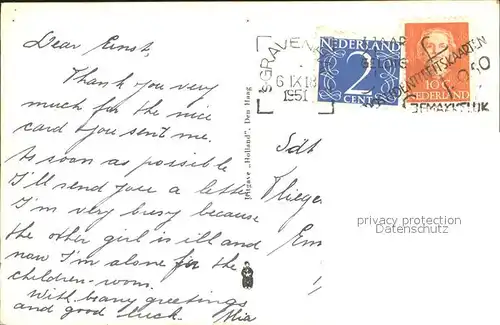 Dear Ernst,
Thank you very
much for the nice
card you sent me.
As soon as possible
I'll send you a letter
I'm very busy because
the other girl is ill and
now I'm alone for the
children-room.
With many greetings
and good luck. Mia
Uitgave „Holland", Den Haag
'SGRAVENHAGE
6 IX 18
1951
NEDERLAND
2
CENT
10
NEDERLAND
1 JAAR
GELDIG
POSTIDENTITEITSKAARTEN
GEMAKKELIJK
Sdt
Vliege
Em
privacy protection
Datenschutz